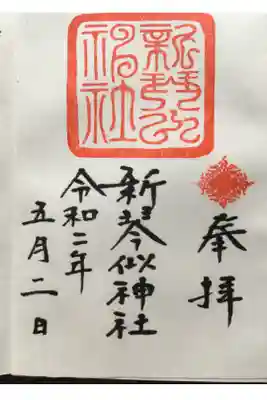 新琴似
神社
奉拝
新琴似神社
令和二年
五月二日